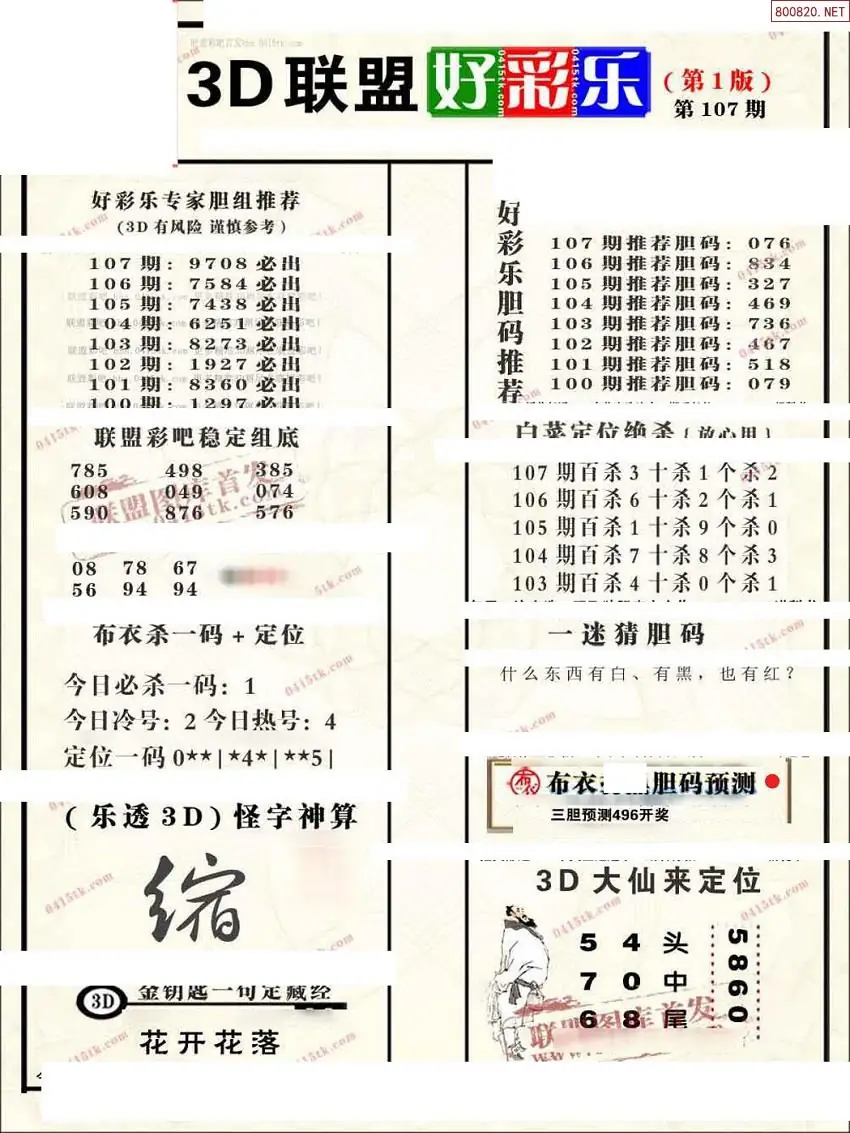 800820.NET
3D联盟好彩乐
(第1版)
第107期
好彩乐专家胆组推荐
(3D有风险 谨慎参考)
107期:9708必出
106期:7584必出
105期:7438必出
104期:6251必出
103期:8273必出
102期:1927必出
101期:8360必出
100期:1297必出
联盟彩吧稳定组底
785 498 385
608 049 074
590 876 576
08 78 67
56 94 94
布衣杀一码+定位
今日必杀一码:1
今日冷号:2 今日热号:4
定位一码0**|*4*|**5|
(乐透3D)怪字神算
缩
3D
金钥匙一句定藏经
花开花落
好彩乐胆码推荐
107期推荐胆码:076
106期推荐胆码:834
105期推荐胆码:327
104期推荐胆码:469
103期推荐胆码:736
102期推荐胆码:467
101期推荐胆码:518
100期推荐胆码:079
白菜定位绝杀{放心用}
107期百杀3十杀1个杀2
106期百杀6十杀2个杀1
105期百杀1十杀9个杀0
104期百杀7十杀8个杀3
103期百杀4十杀0个杀1
一迷猜胆码
什么东西有白、有黑,也有红?
布衣
布衣 胆码预测
三胆预测496开奖
3D大仙来定位
54头
70中
68尾
5860
联盟图库首发
0415tk.com